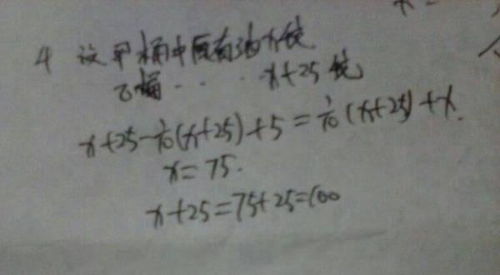 4 设甲桶中原有油x
乙桶 · · · x+25
x+25-1/10(x+25)+5=1/10(x+25)+x.
x=75.
x+25=75+25=100